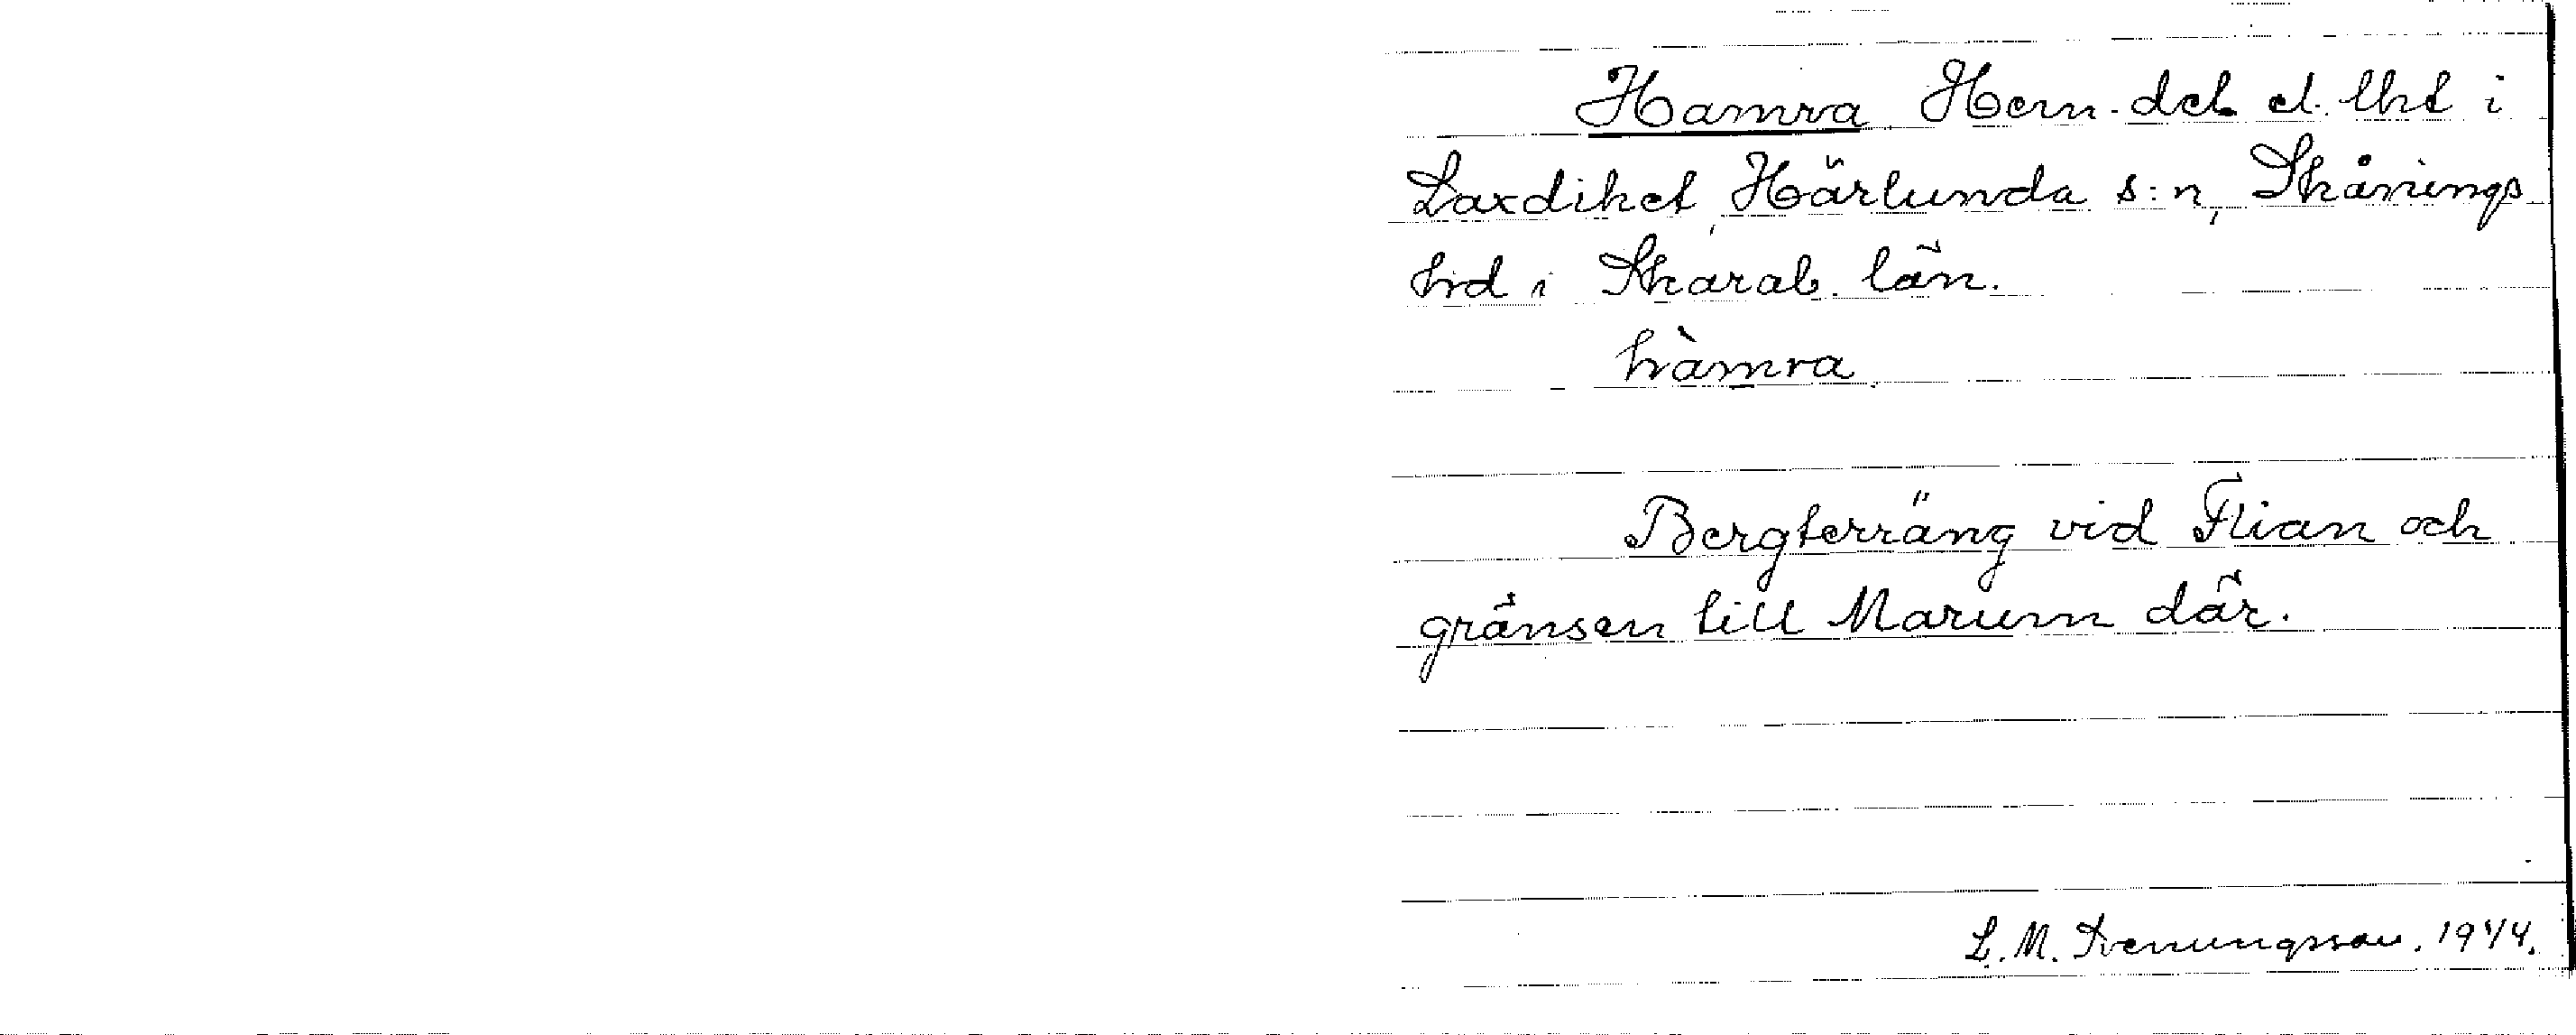 Hamra Hem. del el. lht i
Laxdiket, Härlunda s:n, Skånings
hrd i Skarab. län.
hàmra
Bergterräng vid Flian och
gränsen till Marum där.
L. M. Svenungsson. 1944.